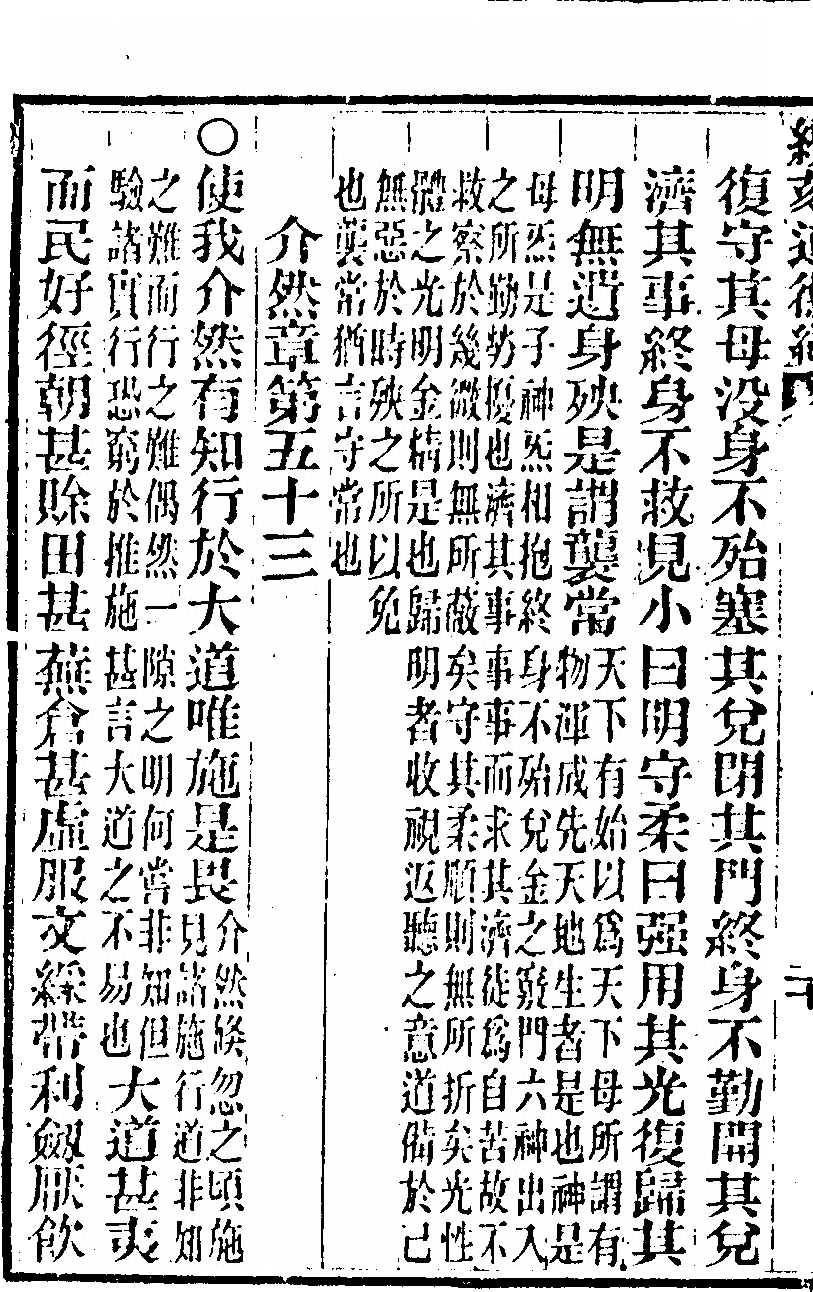 復守其母没身不殆塞其兌閉其門終身不勤開其兌
濟其事終身不救見小曰明守柔曰强用其光復歸其
明無遺身殃是謂襲常
天下有始以為天下母所謂有
物渾成先天地生者是也神是
母炁是子神炁相抱終身不殆兌金之竅門六神出入
之所勤勞擾也濟其事事事而求其濟徒為自苦故不
救察於幾微則無所蔽矣守其柔順則無所折矣光性
體之光明金精是也歸明者收視返聽之意道備於己
無惡於時殃之所以免
也襲常猶言守常也
介然章第五十三
○使我介然有知行於大道唯施是畏
介然倏忽之頃施
見諸施行道非知
之難而行之難偶然一隙之明何嘗非知但
驗諸實行恐窮於推施甚言大道之不易也
大道甚夷
而民好徑朝甚除田甚蕪倉甚虛服文綵帶利劔厭飲